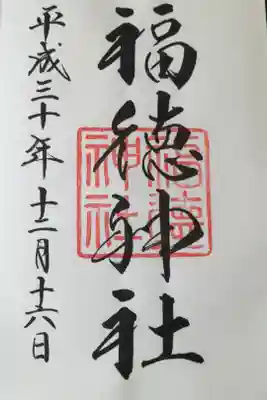 福徳神社
平成三十年十二月十六日
福徳
神社